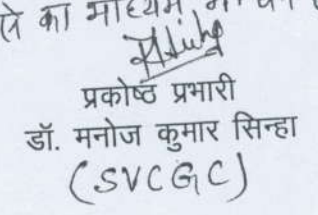 का माध्यम
प्रकोष्ठ प्रभारी
डॉ. मनोज कुमार सिन्हा
(SVCGC)